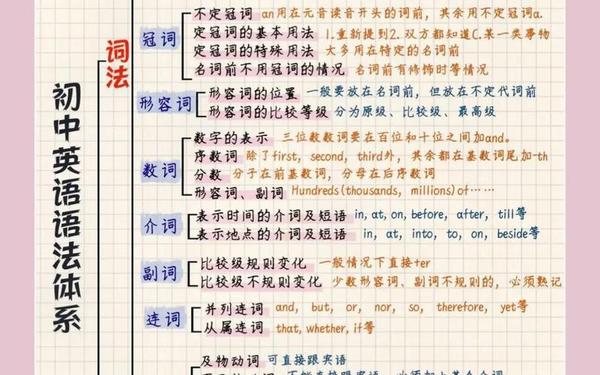 初中英语语法体系
词法
冠词
不定冠词 an用在元音读音开头的词前，其余用不定冠词a.
定冠词的基本用法 1.重新提到2.双方都知道C.某一类事物
定冠词的特殊用法 大多用在特定的名词前
名词前不用冠词的情况 名词前有修饰时等情况
形容词
形容词的位置 一般要放在名词前，但放在不定代词前
形容词的比较等级 分为原级、比较级、最高级
数词
数字的表示 三位数数词要在百位和十位之间加and。
序数词 除了first, second, third外，其余都在基数词尾加-th
分数 分子在前基数词，分母在后序数词
形容词、副词 Hundreds(thousands, millions)of……
介词
表示时间的介词及短语 in, at, on, before, after, till等
表示地点的介词及短语 in, at, into, to, on, beside等
副词
比较级规则变化 一般情况下直接+er
比较级不规则变化 少数形容词、副词不规则的，必须熟记
连词
并列连词 and, but, or, nor, so, therefore, yet等
从属连词 that, whether, if等
及物动词 可直接跟宾语